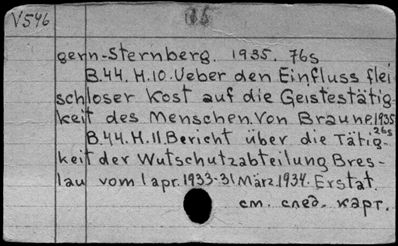 V546
85
gern-Sternberg. 1935. 76s
B.44. H.10. Ueber den Einfluss flei
schloser Kost auf die Geistestätig-
keit des Menschen. Von Braune. 1935
26s
B.44. H.11. Bericht über die Tätig-
keit der Wutschutzabteilung Bres-
lau vom 1 apr. 1933-31 März. 1934. Erstat.
см. след. карт.